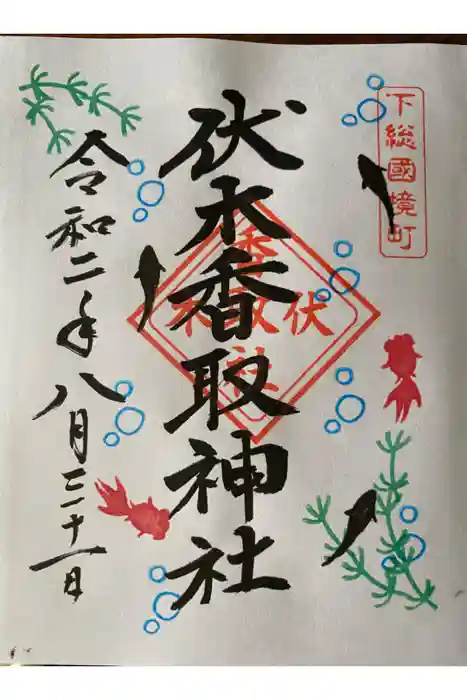 下総國境町
伏木香取神社
伏木
香取社
令和二年八月三十一日